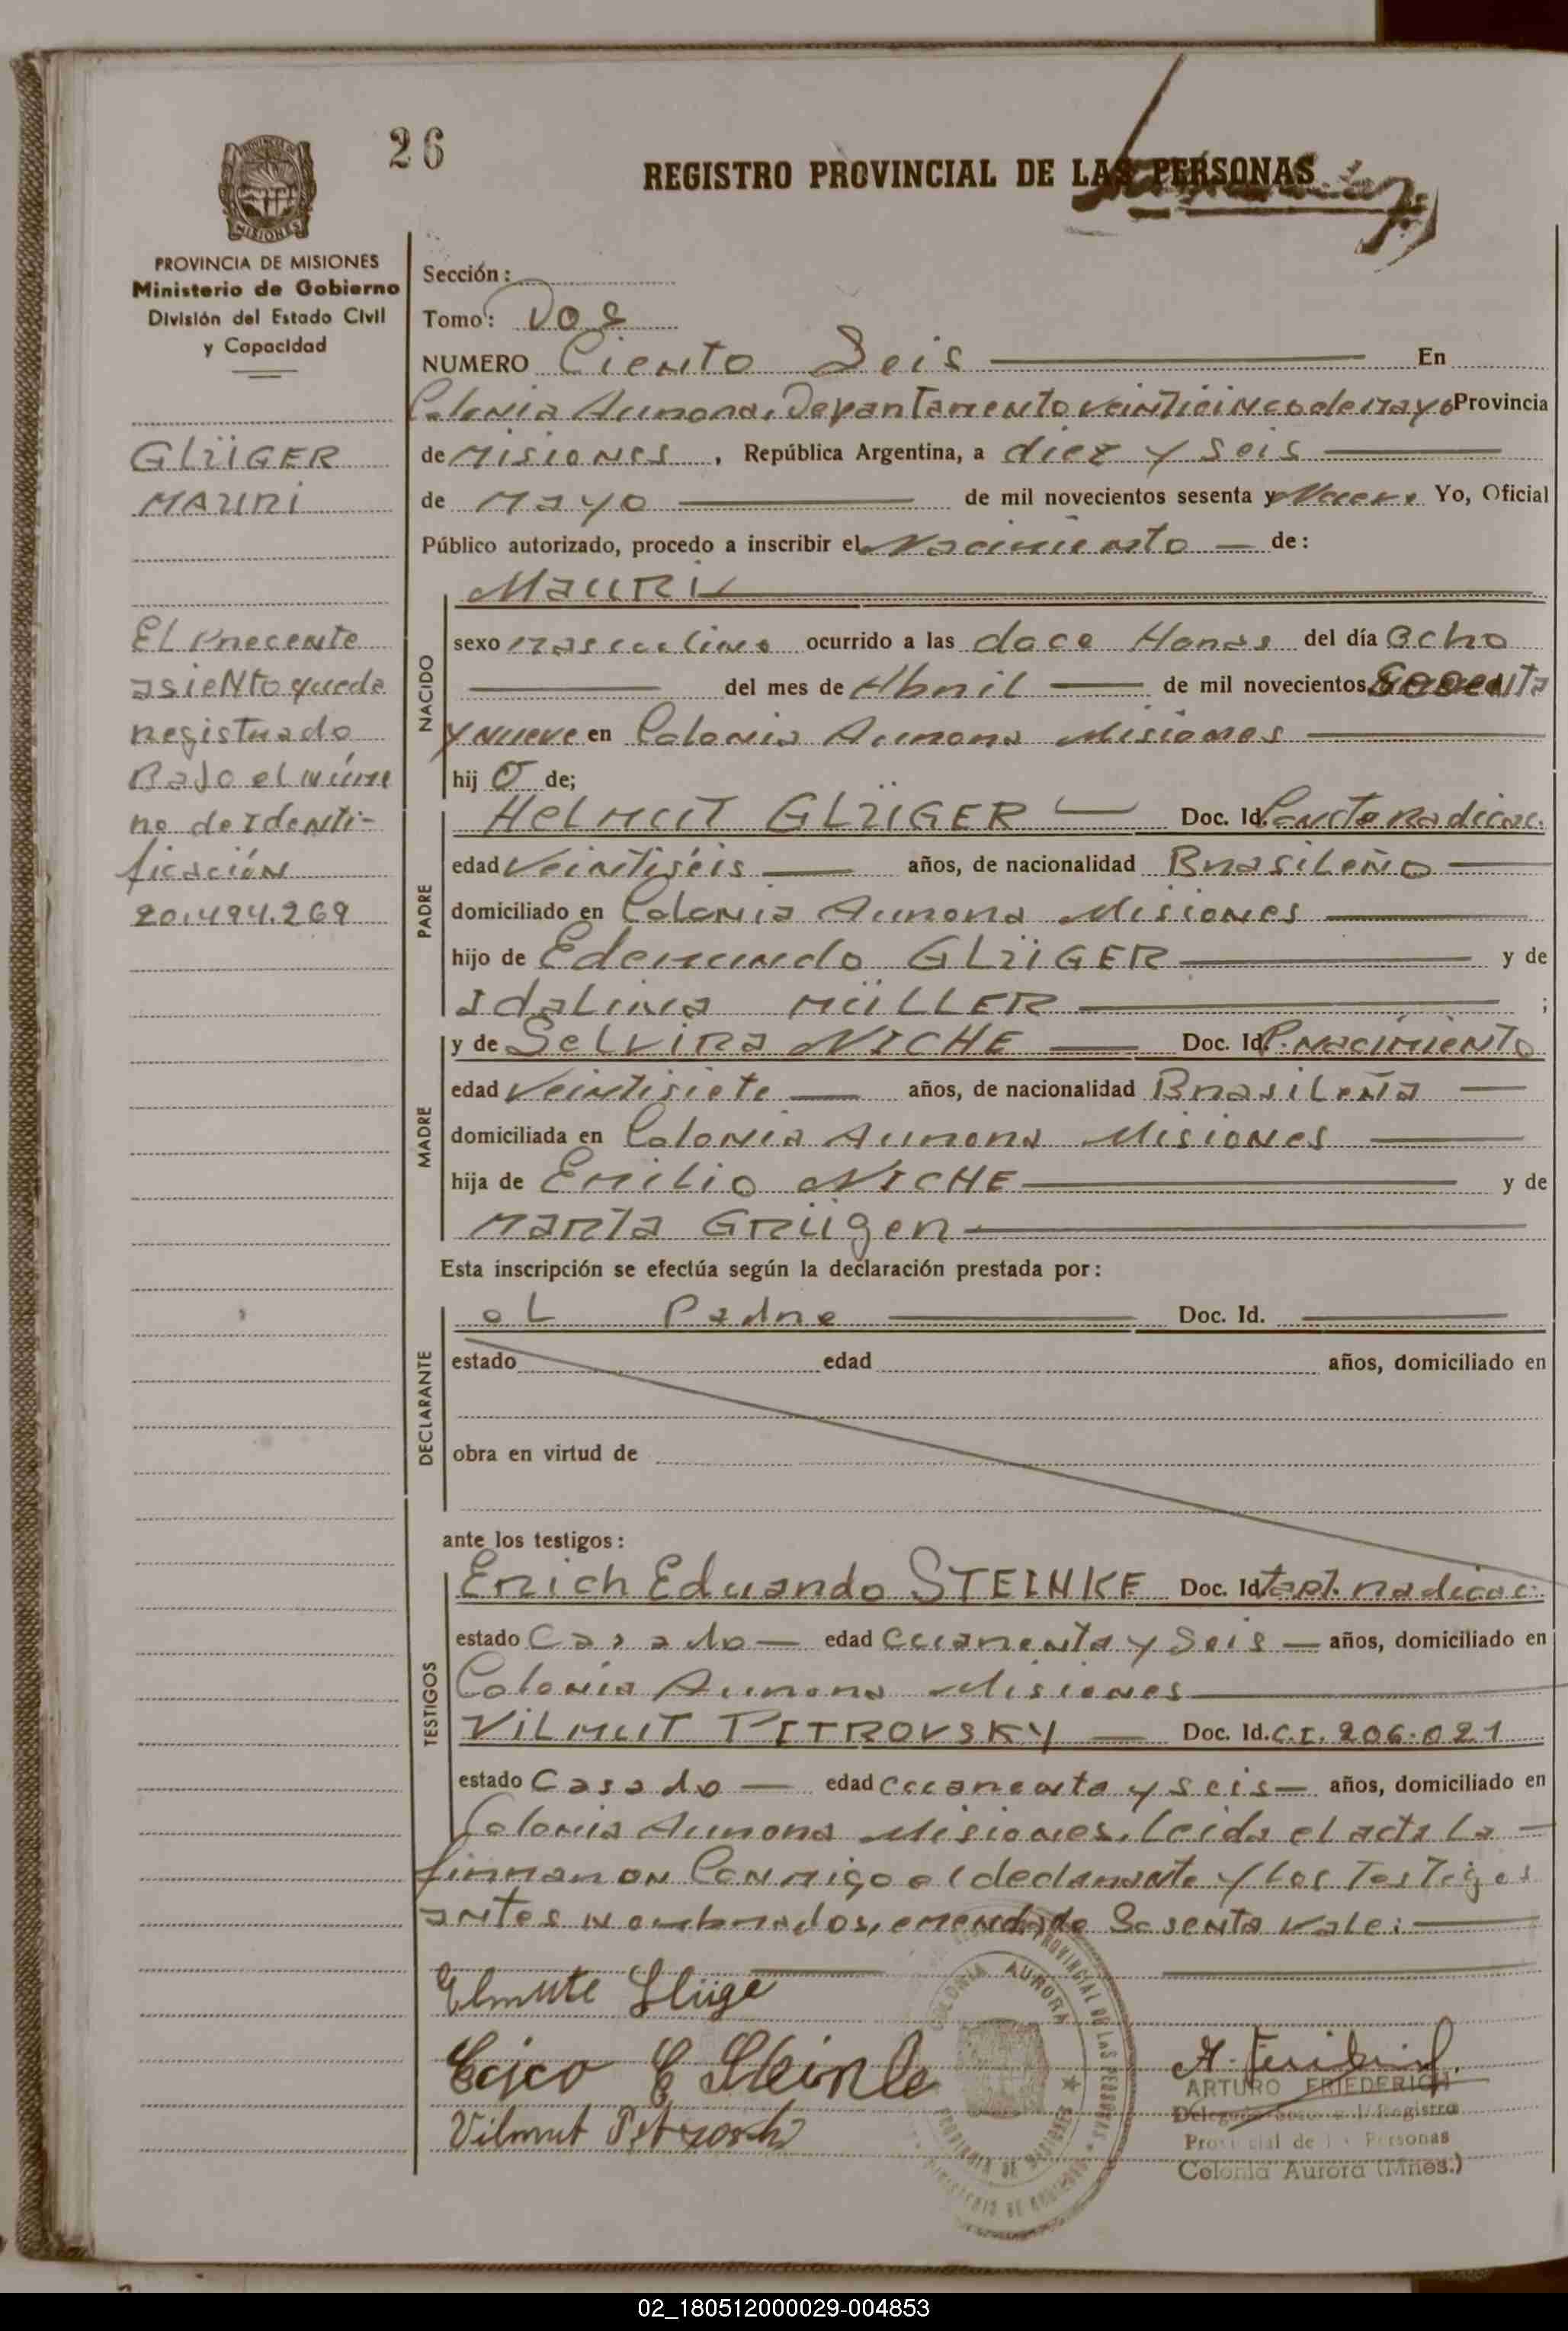 26
REGISTRO PROVINCIAL DE LAS PERSONAS
MISIONES
PROVINCIA DE MISIONES
Ministerio de Gobierno
División del Estado Civil
y Capacidad
GLÜGER
MAURI
El Precente
asiento queda
registrado
Bajo el núme
ro de Identi-
ficación
20.494.269
Sección:
Tomo: Dos
NUMERO Ciento Seis En
Colonia Aurora, Departamento veinticinco de mayo Provincia
de Misiones, República Argentina, a diez y seis
de Mayo de mil novecientos sesenta y Nueve Yo, Oficial
Público autorizado, procedo a inscribir el Nacimiento de:
NACIDO
MAURI
sexo masculino ocurrido a las doce Horas del día Ocho
del mes de Abril de mil novecientos Sesenta
y nueve en Colonia Aurora Misiones
hij o de;
PADRE
HELMUT GLÜGER Doc. Id. radicac.
edad veintiséis años, de nacionalidad Brasileño
domiciliado en Colonia Aurora Misiones
hijo de Edemundo GLÜGER y de
Idalina MÜLLER ;
MADRE
y de Selvira NICHE Doc. Id. P. nacimiento
edad veintisiete años, de nacionalidad Brasileña
domiciliada en Colonia Aurora Misiones
hija de Emilio NICHE y de
Marta Grügen
Esta inscripción se efectúa según la declaración prestada por:
DECLARANTE
el Padre Doc. Id.
estado edad años, domiciliado en
obra en virtud de
ante los testigos:
TESTIGOS
Erich Eduardo STEINKE Doc. Id. radicac.
estado Casado edad cuarenta y Seis años, domiciliado en
Colonia Aurora Misiones
VILMUT PETROVSKY Doc. Id. C.I. 206.021
estado Casado edad cuarenta y seis años, domiciliado en
Colonia Aurora Misiones. Leida el acta La
firmaron Conmigo el declarante y los Testigos
antes nombrados, emendado Sesenta vale:
Elmute Glüge
E Steinke
Vilmut
COLONIA AURORA
PROVINCIAL DE LAS PERSONAS
PROVINCIA DE MISIONES
A. Friederich
ARTURO FRIEDERICH
Registro
Provincial de las Personas
Colonia Aurora (Mnes.)
02_180512000029-004853